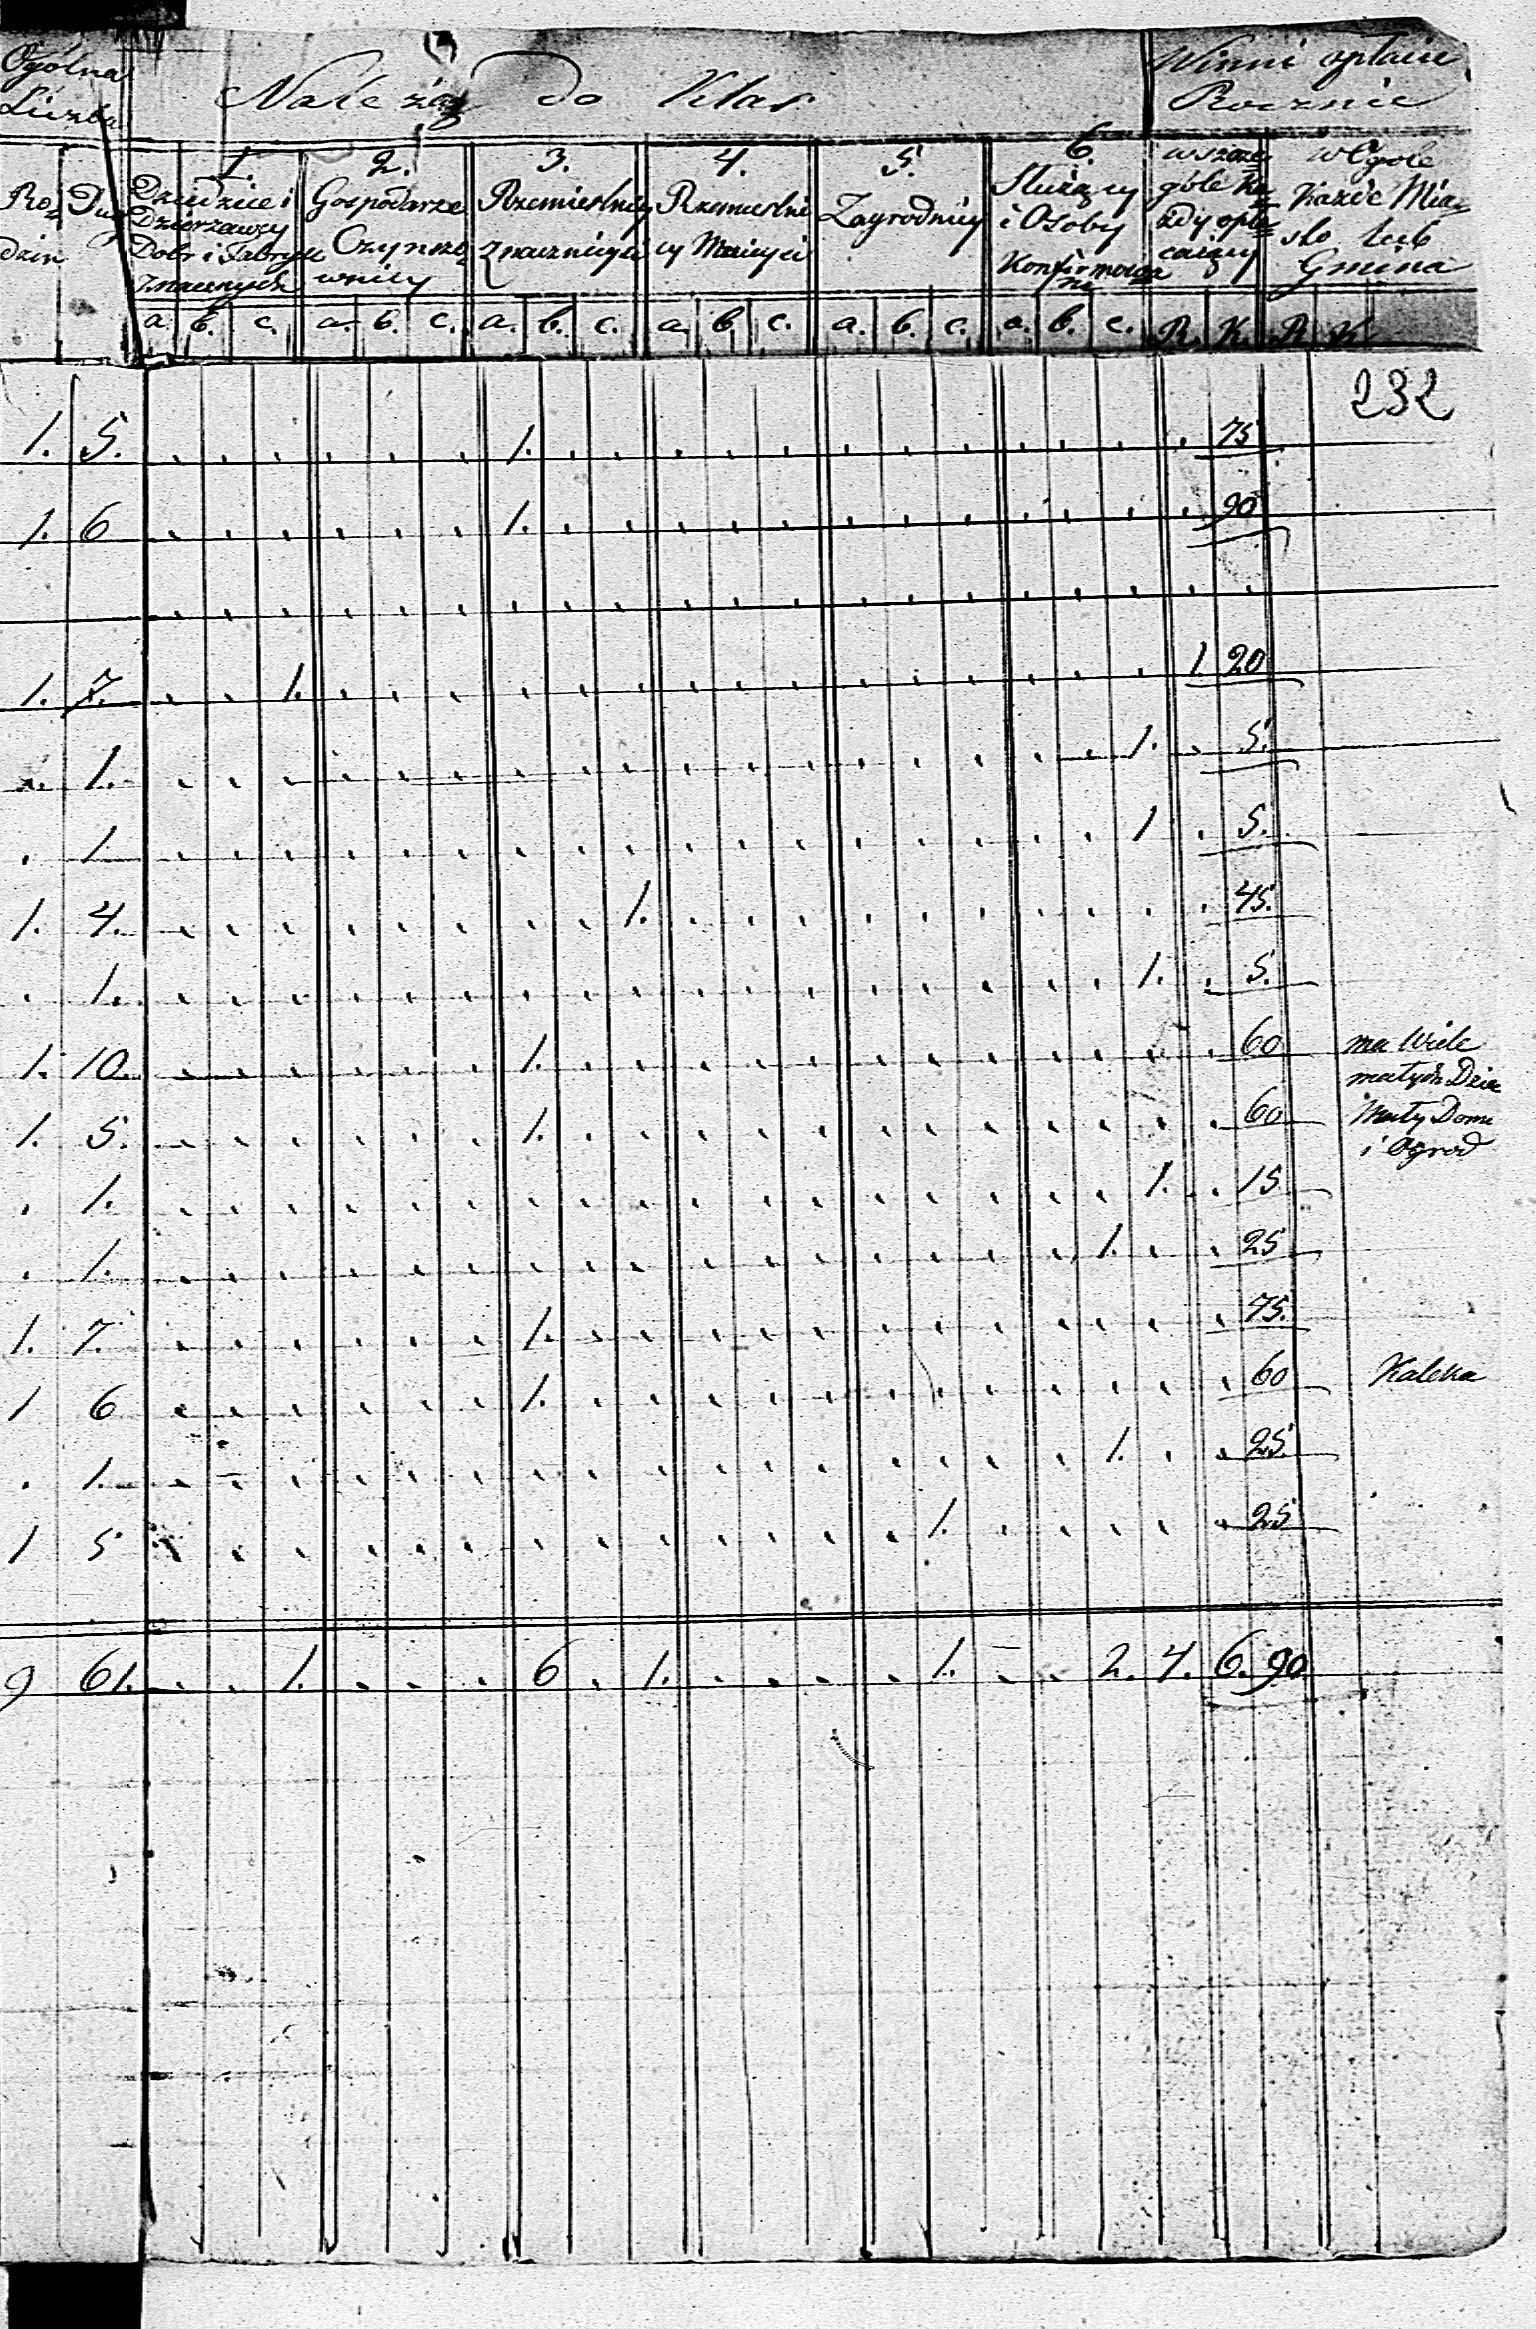 Ogólna Należą do Klas Winni opłacic
Liczba Rocznie
1. 2. 3. 4. 5. 6. w szcze w Ogole
Ro= Dusz Dziedzice i Gospodarze Rzemieslnicy Rzemieslni Zagrodnicy Służący góle Ka każde Mia=
dzin Dzierzawcy Czynszo= Znacznieysi cy Mnieysi i Osoby żdy opła= sto lub
Dobr i Fabryk wnicy Konfirmowa caiący Gmina
Znacznych ne
a. b. c. a. b. c. a. b. c. a. b. c. a. b. c. a. b. c. R. K. R. K.
232
1. 5. 1. 75
1. 6 1. 90
1. 7. 1. 1. 20
. 1. 1. . 5.
. 1 1 . 5.
1. 4. 1. . 45.
. 1. 1. . 5.
1. 10. 1. . 60 ma Wiele
małych Dzie
1. 5. 1. . 60 Mały Dom
i Ogrod
. 1. 1. . 15
. 1. 1. . 25
1. 7. 1. . 75.
1 6 1. . 60 Kaleka
. 1. 1. . 25.
1 5 1. . 25
9 61. 1. 6 1. 1. 2. 4. 6. 90